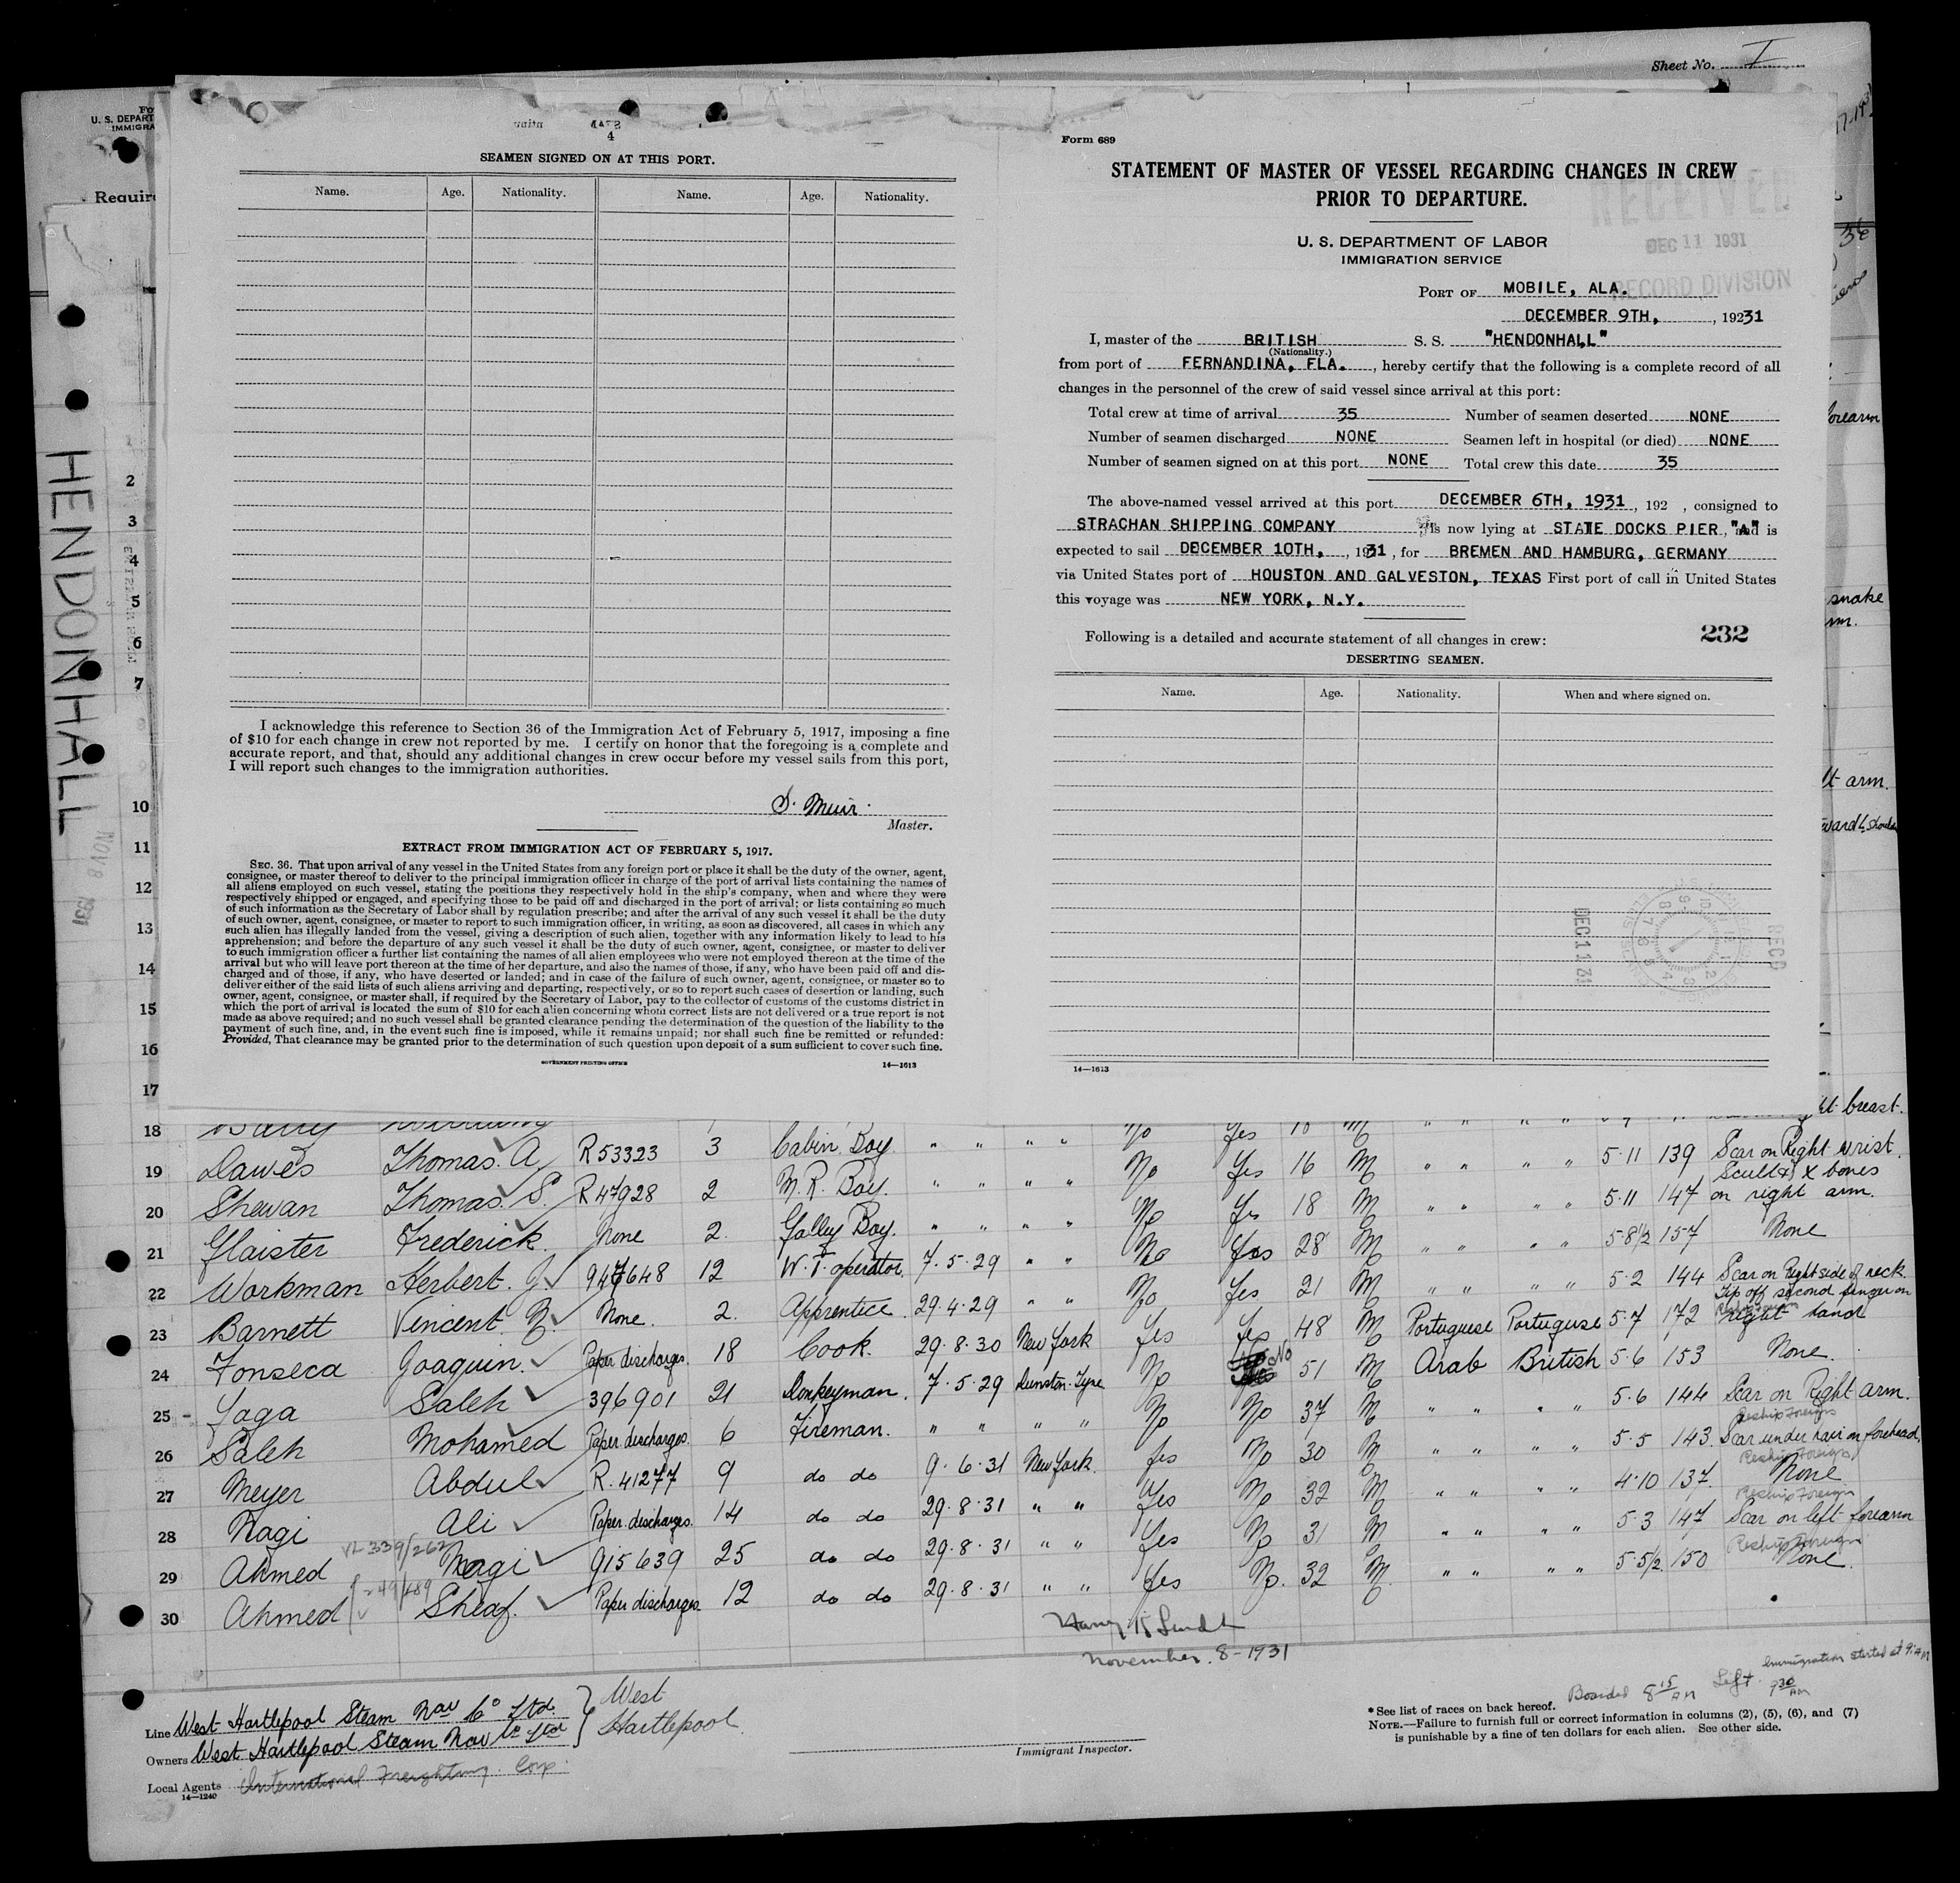 Sheet No. I
U. S. DEPART
IMMIGRA
Require
HENDONHALL
NOV 8 1931
4
SEAMEN SIGNED ON AT THIS PORT.
Name. Age. Nationality. Name. Age. Nationality.
I acknowledge this reference to Section 36 of the Immigration Act of February 5, 1917, imposing a fine
of $10 for each change in crew not reported by me. I certify on honor that the foregoing is a complete and
accurate report, and that, should any additional changes in crew occur before my vessel sails from this port,
I will report such changes to the immigration authorities.
S. Muir.
Master.
EXTRACT FROM IMMIGRATION ACT OF FEBRUARY 5, 1917.
SEC. 36. That upon arrival of any vessel in the United States from any foreign port or place it shall be the duty of the owner, agent,
consignee, or master thereof to deliver to the principal immigration officer in charge of the port of arrival lists containing the names of
all aliens employed on such vessel, stating the positions they respectively hold in the ship's company, when and where they were
respectively shipped or engaged, and specifying those to be paid off and discharged in the port of arrival; or lists containing so much
of such information as the Secretary of Labor shall by regulation prescribe; and after the arrival of any such vessel it shall be the duty
of such owner, agent, consignee, or master to report to such immigration officer, in writing, as soon as discovered, all cases in which any
such alien has illegally landed from the vessel, giving a description of such alien, together with any information likely to lead to his
apprehension; and before the departure of any such vessel it shall be the duty of such owner, agent, consignee, or master to deliver
to such immigration officer a further list containing the names of all alien employees who were not employed thereon at the time of the
arrival but who will leave port thereon at the time of her departure, and also the names of those, if any, who have been paid off and dis-
charged and of those, if any, who have deserted or landed; and in case of the failure of such owner, agent, consignee, or master so to
deliver either of the said lists of such aliens arriving and departing, respectively, or so to report such cases of desertion or landing, such
owner, agent, consignee, or master shall, if required by the Secretary of Labor, pay to the collector of customs of the customs district in
which the port of arrival is located the sum of $10 for each alien concerning whom correct lists are not delivered or a true report is not
made as above required; and no such vessel shall be granted clearance pending the determination of the question of the liability to the
payment of such fine, and, in the event such fine is imposed, while it remains unpaid; nor shall such fine be remitted or refunded:
Provided, That clearance may be granted prior to the determination of such question upon deposit of a sum sufficient to cover such fine.
GOVERNMENT PRINTING OFFICE 14—1613
Form 689
STATEMENT OF MASTER OF VESSEL REGARDING CHANGES IN CREW
PRIOR TO DEPARTURE.
U. S. DEPARTMENT OF LABOR
IMMIGRATION SERVICE
RECEIVED
DEC 11 1931
RECORD DIVISION
PORT OF MOBILE, ALA.
DECEMBER 9TH, , 19231
I, master of the BRITISH S. S. "HENDONHALL"
(Nationality.)
from port of FERNANDINA, FLA. , hereby certify that the following is a complete record of all
changes in the personnel of the crew of said vessel since arrival at this port:
Total crew at time of arrival 35 Number of seamen deserted NONE
Number of seamen discharged NONE Seamen left in hospital (or died) NONE
Number of seamen signed on at this port NONE Total crew this date 35
The above-named vessel arrived at this port DECEMBER 6TH, 1931 , 192 , consigned to
STRACHAN SHIPPING COMPANY is now lying at STATE DOCKS PIER, "A" and is
expected to sail DECEMBER 10TH, , 1931 , for BREMEN AND HAMBURG, GERMANY
via United States port of HOUSTON AND GALVESTON, TEXAS First port of call in United States
this voyage was NEW YORK, N.Y.
Following is a detailed and accurate statement of all changes in crew: 232
DESERTING SEAMEN.
Name. Age. Nationality. When and where signed on.
RECD
DEC 11 31
14—1613
2
3
4
5
6
7
10
11
12
13
14
15
16
17
forearm
snake
arm.
lt arm.
ht breast.
18 Barry William
19 Dawes Thomas. A. R53323 3 Cabin Boy " " " " No Yes 16 M " " " " 5·11 139 Scar on Right wrist.
20 Shewan Thomas. S. R47928 2 M. R. Boy. " " " " No Yes 18 M " " " " 5·11 147 Scull & X bones on right arm.
21 Glaister Frederick. None 2 Galley Boy. " " " " No Yes 28 M " " " " 5·8 1/2 157 None
22 Workman Herbert. J. 947648 12 W. T. operator. 7·5·29 " " No Yes 21 M " " " " 5·2 144 Scar on Right side of neck.
23 Barnett Vincent. N. None. 2. Apprentice 29·4·29 " " Tip off second finger on right hand
24 Fonseca Joaquin. Paper discharges. 18 Cook. 29·8·30 New York Yes Yes 48 M Portuguese Portuguese 5·7 172
25 Yaga Saleh 396901 21 Donkeyman. 7·5·29 Dunston-Tyne No No 51 M Arab British 5·6 153 None.
26 Saleh Mohamed Paper discharges. 6 Fireman. " " " " No No 37 M " " " " 5·6 144 Scar on Right arm.
Reship Foreign
27 Meyer Abdul R. 41277 9 do do 9·6·31 New York. Yes No 30 M " " " " 5·5 143. Scar under hair on forehead.
Reship Foreign
28 Nagi Ali Paper discharges. 14 do do 29·8·31 " " Yes No 32 M " " " " 4·10 137. None
Reship Foreign
29 Ahmed Nagi 915639 25 do do 29·8·31 " " Yes No 31 M " " " " 5·3 147 Scar on left forearm
Reship Foreign
30 Ahmed Sheaf. Paper discharges. 12 do do 29·8·31 " " Yes No. 32 M. " " " " 5·5 1/2. 150 None.
November. 8 - 1931
Line West Hartlepool Steam Nav Co Ltd. } West
Owners West Hartlepool Steam Nav Co Ltd Hartlepool.
Local Agents International Freighting. Corp.
14—1240
Immigrant Inspector.
Boarded 8 15 AM Left 9 30 AM Immigration started at 9: AM
* See list of races on back hereof.
NOTE.—Failure to furnish full or correct information in columns (2), (5), (6), and (7)
is punishable by a fine of ten dollars for each alien. See other side.